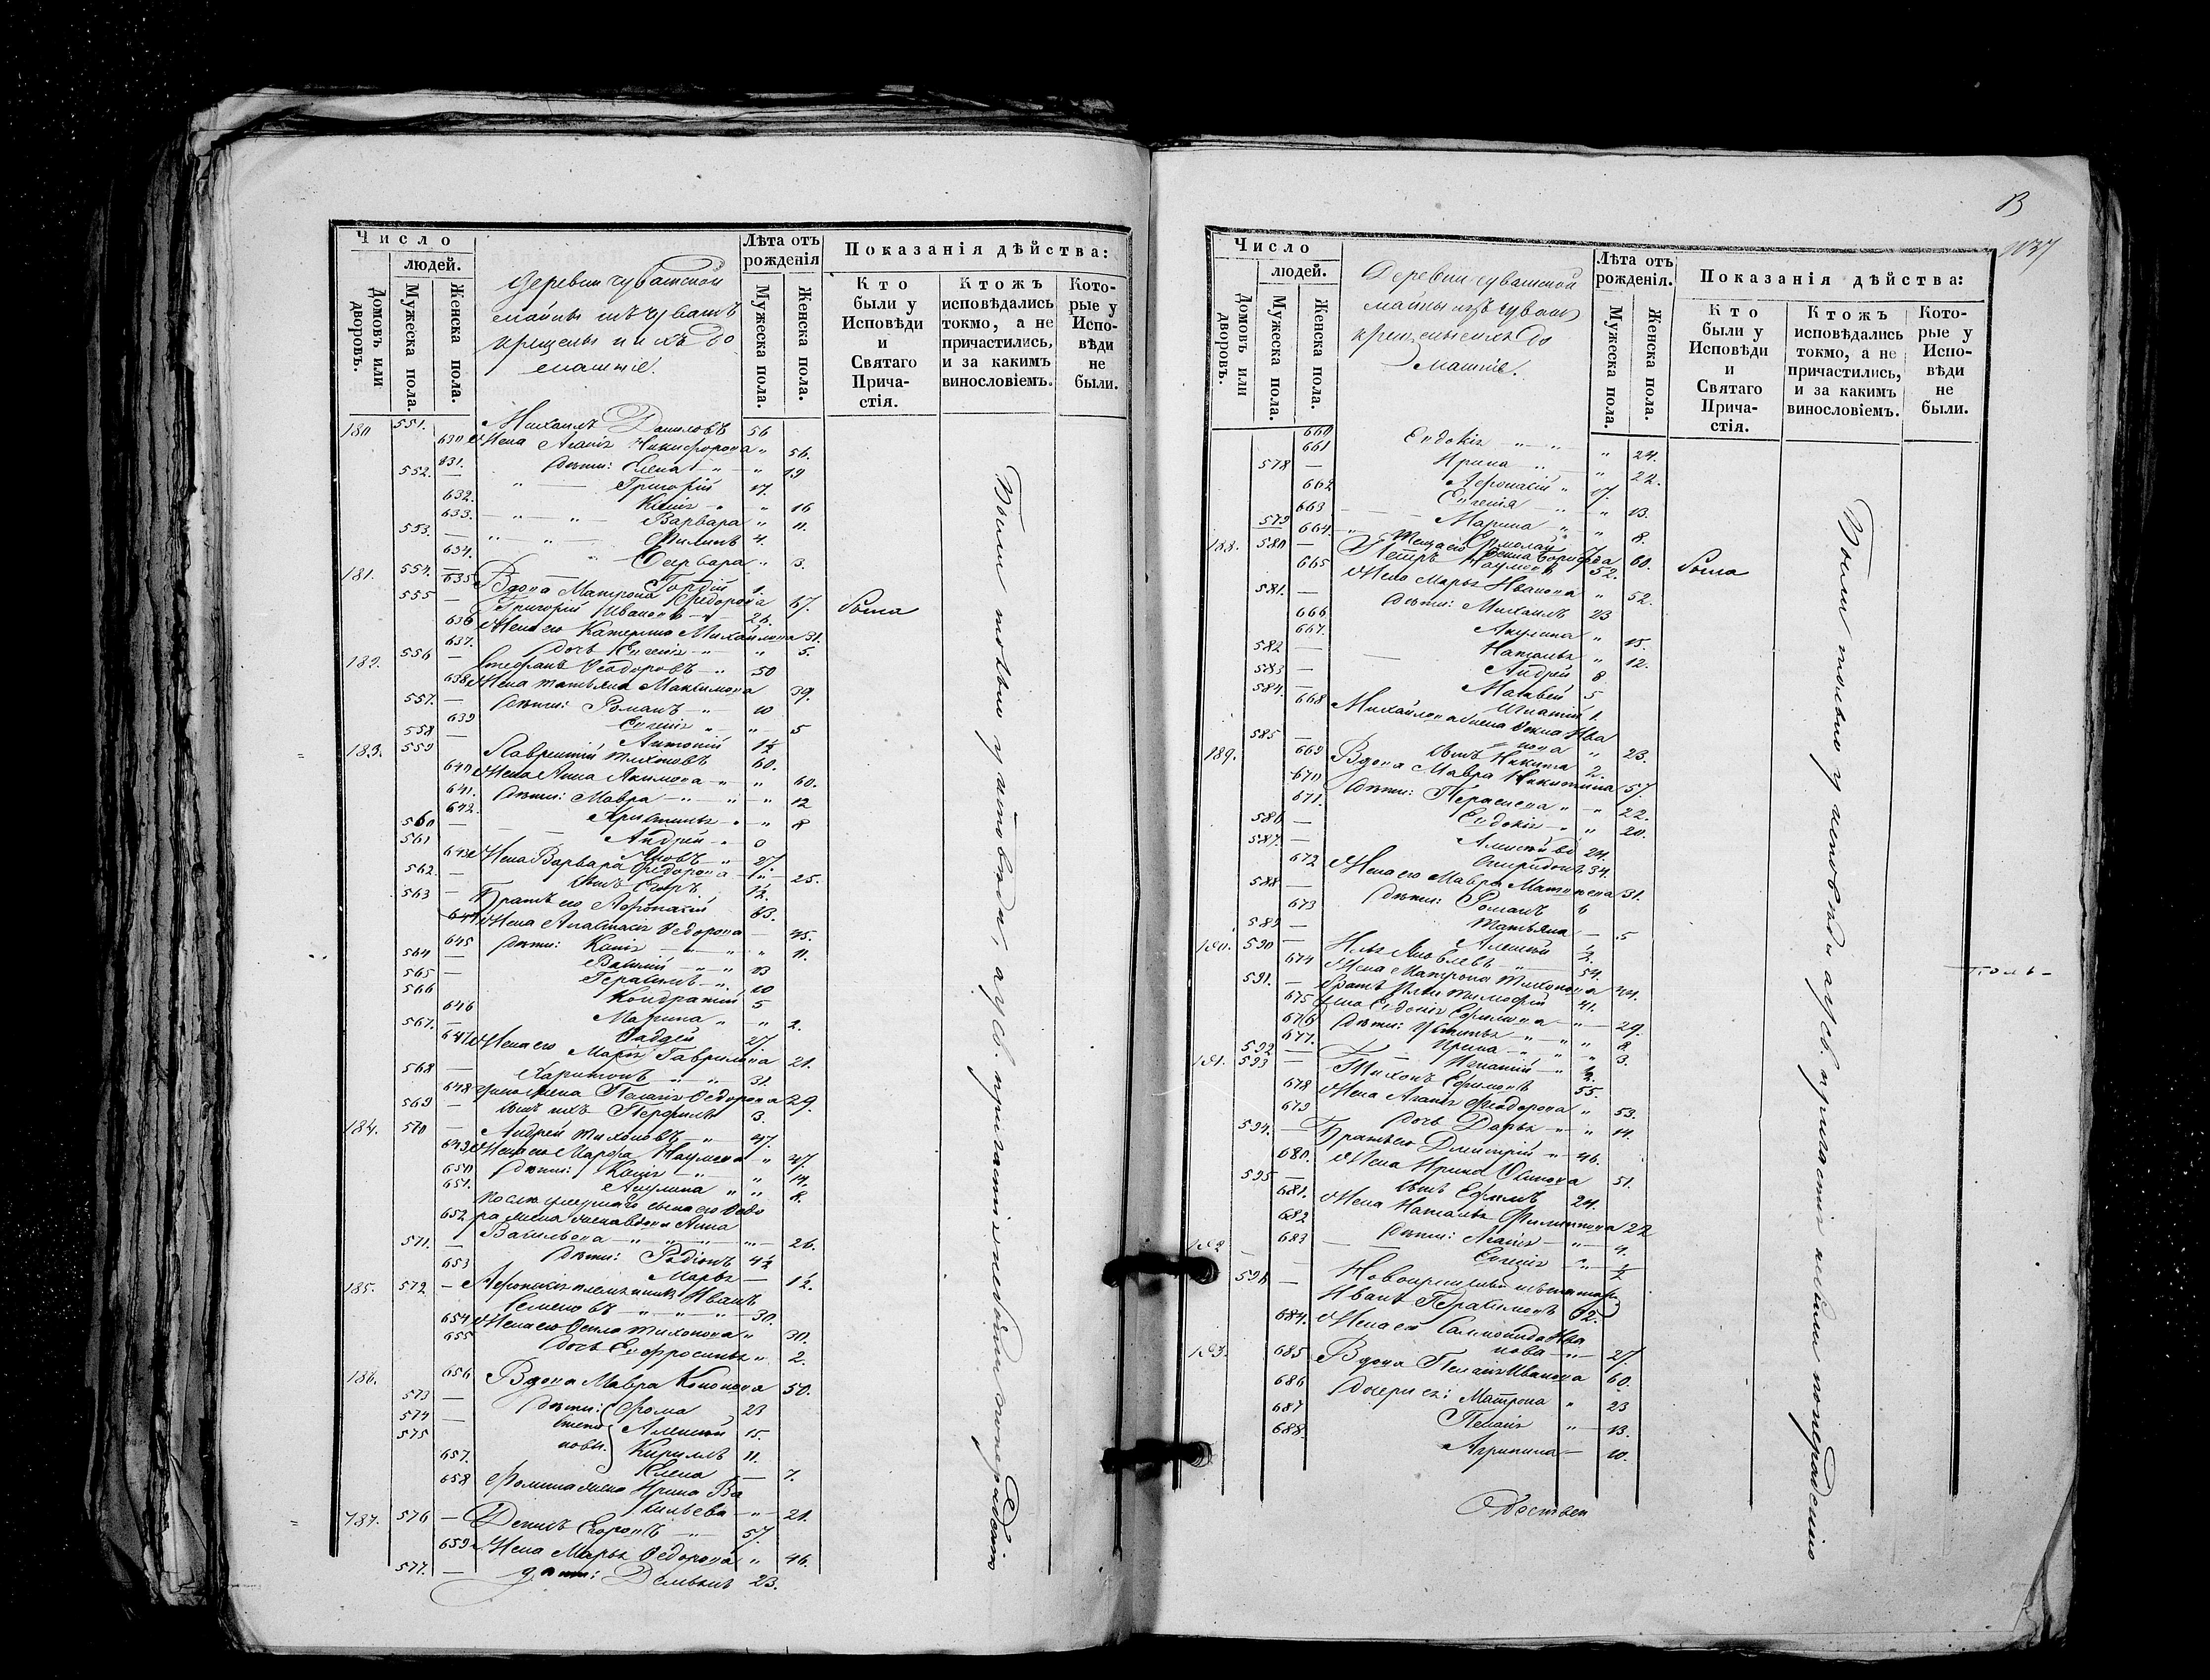 Число
людей.
Домовъ или дворовъ.
Мужеска пола.
Женска пола.
деревни чувашской
майны изъ чувашъ
крещены и ихъ до
машніе.
Лѣта отъ рожденія
Мужеска пола.
Женска пола.
Показанія дѣйства:
Кто были у Исповѣди и Святаго Прича-стія.
Ктожъ исповѣдались токмо, а не причастились, и за какимъ винословіемъ.
Кото-рые у Испо-вѣди не были.
180 551. Михаилъ Даниловъ 56
630 Жена Агаѳія Никифорова " 56.
631. Дѣти: Елена " " 19
552. — " Григорій 17.
632. Ксенія " " 16
633. Варвара " 11.
553. — Филипъ 4.
634. Варвара " 3.
554. — Гордій 1.
181. 635 Вдова Матрона Федорова 67. была
555 — Григорій Ивановъ 26.
636 Жена его Катерина Михайлова 31.
637. дочь Евгенія " " 5.
182. 556 — Стефанъ Ѳедоровъ " 50
638 Жена Татьяна Максимова 39.
557. — Дѣти: Романъ " 10
639 Евгенія " " 5
558 — Антоній 1½
183. 559 Лаврентій Тихоновъ 60.
640 Жена Анна Акимова " " 60.
641. Дѣти: Мавра " " 12
642. Христина " " 8
560 — Андрей "
561 Яковъ " 27.
643 Жена Варвара Федорова " 25.
562. — сынъ Егоръ ½
563 — Братъ его Афонасій 43.
644 Жена Анастасія Ѳедорова — 45.
645 Дѣти: Ксенія " " 11.
564 — Василій " 13
565 — Герасимъ " 10
566 Кондратій 5
646 Марина " " 2.
567. — Фадѣй 27.
647 Жена его Марія Гаврилова 21.
568 — Харитонъ " " 31.
648 у него жена Пелагія Ѳедорова 29.
569 — сынъ ихъ Перфилъ 3.
184. 570 — Андрей Тихоновъ " 47.
649 Жена его Марфа Наумова " 47.
650 Дѣти: Ксенія " " 14.
651. Акулина " " 8.
послѣ умершаго сына его Ѳедо
652 ра жена вдова Анна
Васильева " " " 26.
571. — Дѣти: Родіонъ 4½
653 Марья — 1½.
185. 572 — Афонасія племянникъ Иванъ
Семеновъ " " " 30.
654 Жена его Ѳекла Тихонова " 30.
655 дочь Ефросинья " 2.
186. 656 Вдова Мавра Кононова 50.
573 — Дѣти: Фома 23
574 — Степа Алексѣй 15.
575 новы. Кирилъ 11.
657. Елена — 7.
658 Фомина жена Ирина Ва
сильева " 21.
187. 576 — Денисъ Егоровъ " 57.
659 Жена Марья Ѳедорова " 46.
577. — дѣти: Демьянъ 23.
Были только у исповѣди, а у св. причастія не были по нерадѣнію
В
1137
Число
людей.
Домовъ или дворовъ.
Мужеска пола.
Женска пола.
Деревни чувашской
майны изъ чувашъ
крещеные ихъ до
машніе.
Лѣта отъ рожденія.
Мужеска пола.
Женска пола.
Показанія дѣйства:
Кто были у Исповѣди и Святаго Прича-стія.
Ктожъ исповѣдались токмо, а не причастились, и за какимъ винословіемъ.
Кото-рые у Испо-вѣди не были.
660 Евдокія " " " 24.
661 Ирина " " 22.
578 — Афонасій " 17.
662 Евгенія " " 13.
663 Марина " " 8.
579 — Ермолай
188. 664 Ѳекла Борисова 60. была
580 — Петръ Наумовъ 52.
665 Жена Марья Иванова " 52.
581. — Дѣти: Михаилъ 23
666 Акулина " 15.
667. Наталья " 12.
582 — Андрей 8
583 — Матвей 5
584. — Игнатій 1.
668 Михайлова жена Ѳекла Ива
нова " 23.
585 — сынъ Никита 2.
189. 669 Вдова Мавра Никитина 57.
670 Дѣти: Парасковa " " 22.
671. Евдокія " " 20.
586 — Алексѣй 24.
587. — Спиридонъ 34.
672 Жена его Мавра Матвеева 31.
588 — Дѣти: Романъ 6
673 Татьяна — 5
589 — Алексѣй ½.
190. 590 — Илья Яковлевъ 54.
674 Жена Матрона Тихонова 44.
591. — Братъ Ильи Тимофей 41.
675 Жена Евдокія Ефимова " 29.
676 Дѣти: Устинья " " 8
677. Ирина " " 3.
592 — Игнатій " ½.
191. 593 — Тихонъ Ефимовъ 55.
678 Жена Агаѳія Феодорова " 53.
679 дочь Дарья " " 14.
594. — Братъ его Дмитрій " 46.
680. Жена Ирина Осипова 51.
595 — сынъ Ефимъ 24.
681. Жена Наталья Филиппова 22
682 Дѣти: Агаѳія " 4.
683 Евгенія " ½
192 Новокрещеный изъ татаръ
596 — Иванъ Герасимовъ 32.
684. Жена его Саломонида Ива
нова " 27.
193. 685 Вдова Пелагія Иванова 60.
686 Дочери ея: Матрона " 23
687 Пелагія " 13.
688. Агрипина — 10.
Были только у исповѣди а у св. причастія не были по нерадѣнію